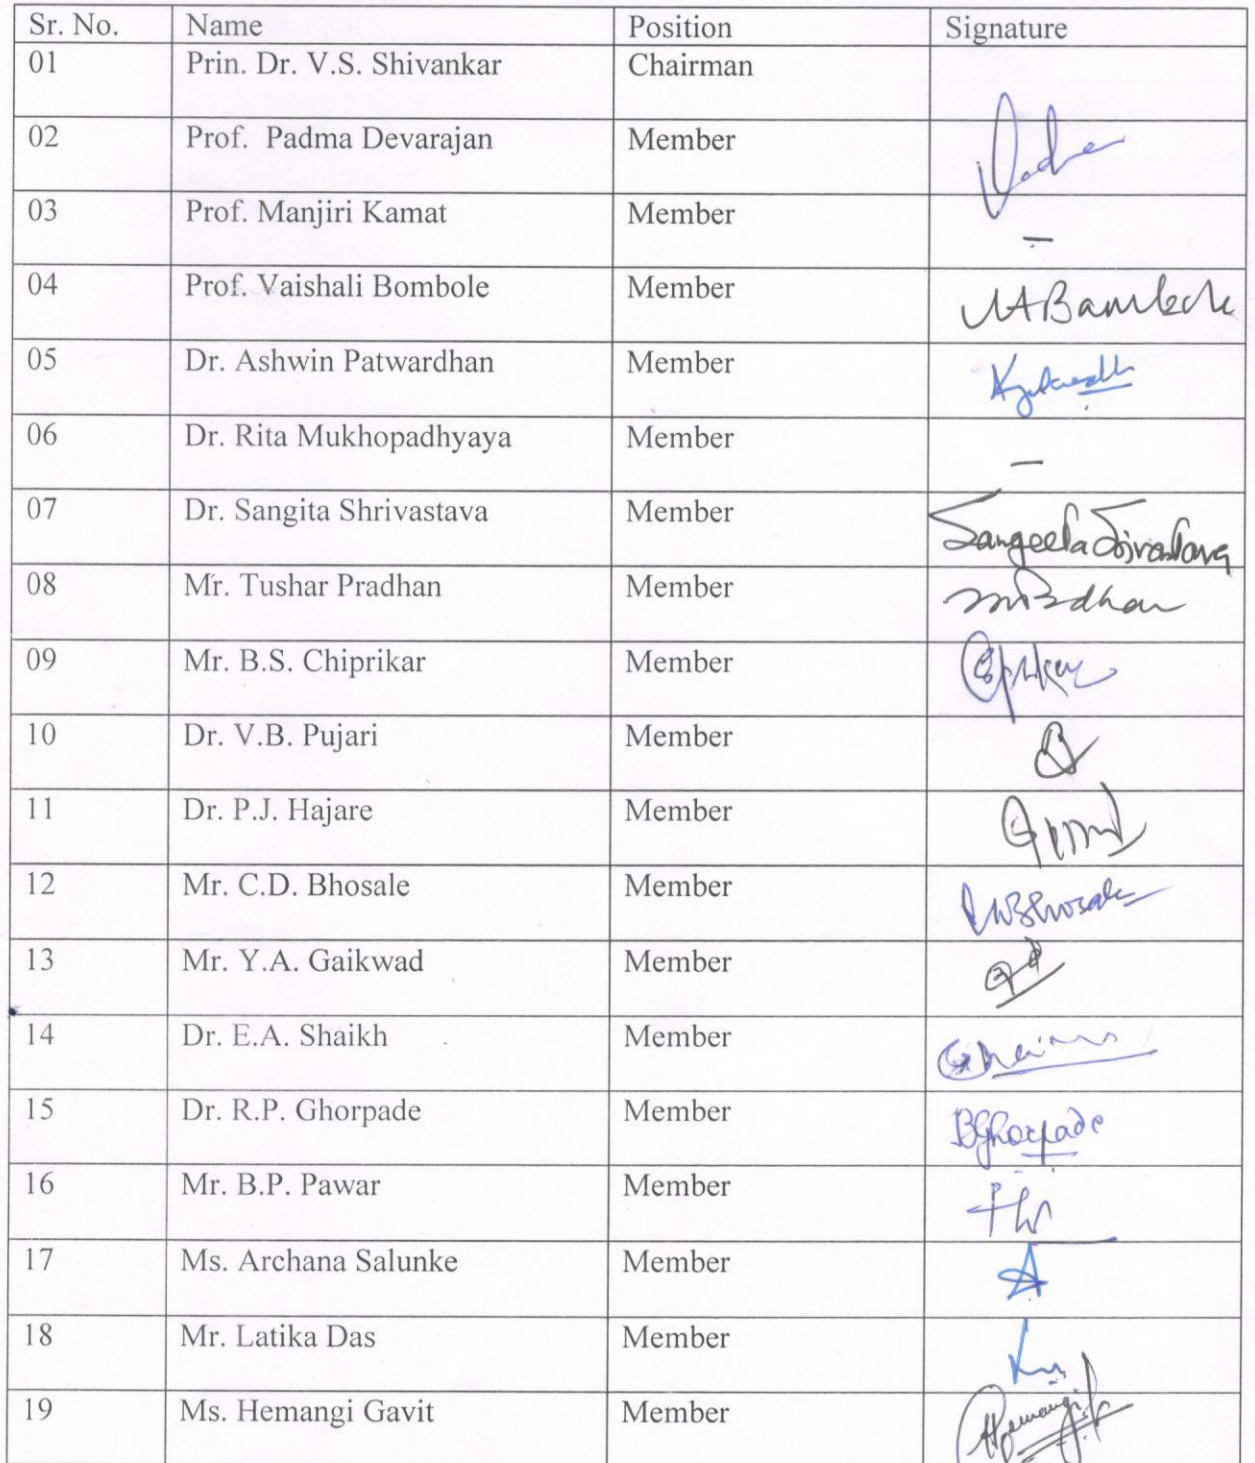 Sr. No. Name Position Signature
01 Prin. Dr. V.S. Shivankar Chairman
02 Prof. Padma Devarajan Member
03 Prof. Manjiri Kamat Member –
04 Prof. Vaishali Bombole Member
05 Dr. Ashwin Patwardhan Member
06 Dr. Rita Mukhopadhyaya Member –
07 Dr. Sangita Shrivastava Member Sangeeta Srivastava
08 Mr. Tushar Pradhan Member
09 Mr. B.S. Chiprikar Member
10 Dr. V.B. Pujari Member
11 Dr. P.J. Hajare Member
12 Mr. C.D. Bhosale Member
13 Mr. Y.A. Gaikwad Member
14 Dr. E.A. Shaikh Member
15 Dr. R.P. Ghorpade Member
16 Mr. B.P. Pawar Member
17 Ms. Archana Salunke Member
18 Mr. Latika Das Member
19 Ms. Hemangi Gavit Member